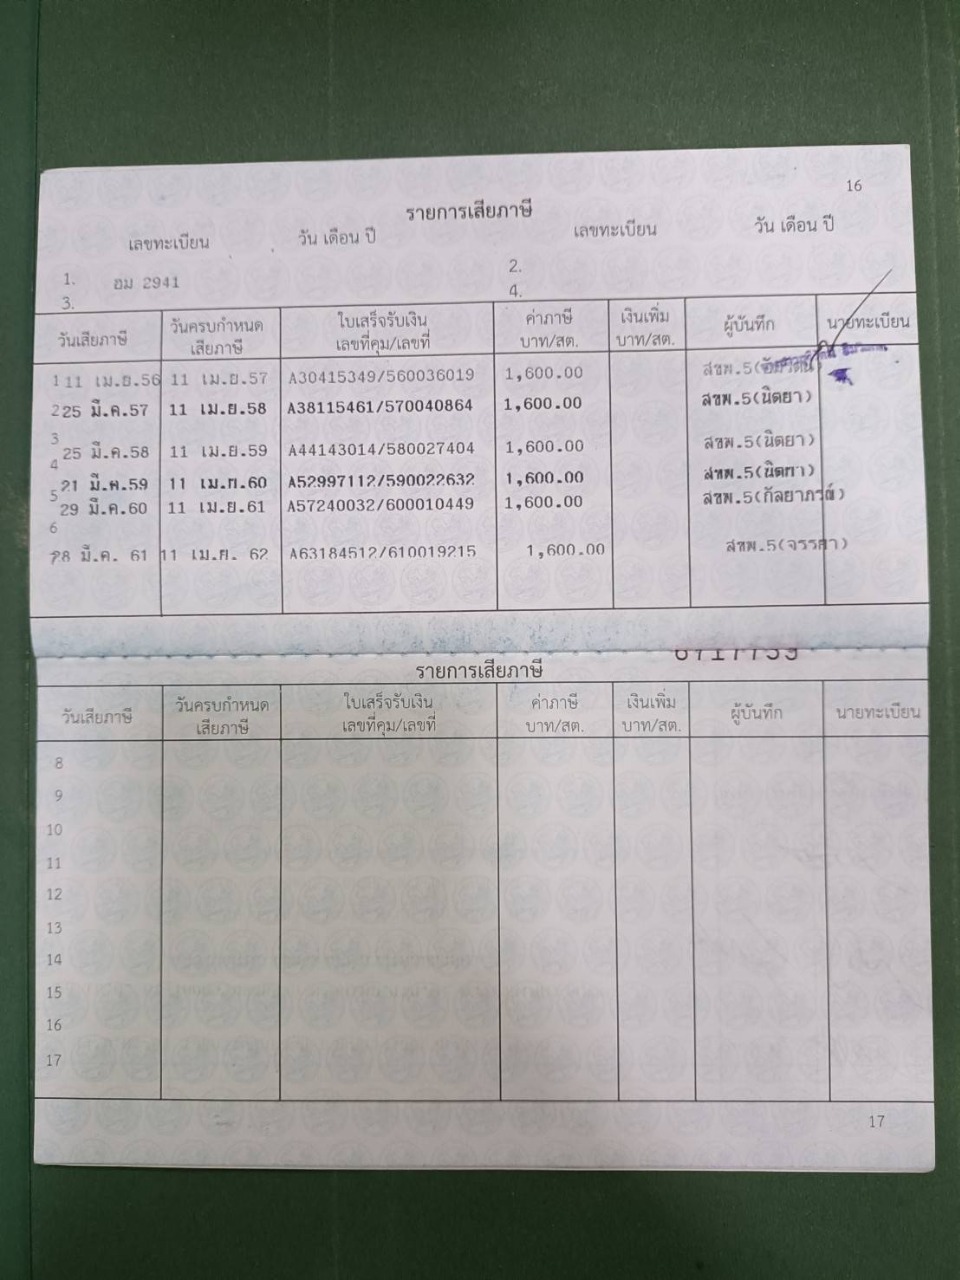 16
รายการเสียภาษี
เลขทะเบียน วัน เดือน ปี เลขทะเบียน วัน เดือน ปี
1. ฮม 2941 2.
3. 4.
วันเสียภาษี วันครบกำหนดเสียภาษี ใบเสร็จรับเงิน เลขที่คุม/เลขที่ ค่าภาษี บาท/สต. เงินเพิ่ม บาท/สต. ผู้บันทึก นายทะเบียน
1 11 เม.ย.56 11 เม.ย.57 A30415349/560036019 1,600.00 สขพ.5
2 25 มี.ค.57 11 เม.ย.58 A38115461/570040864 1,600.00 สขพ.5(นิตยา)
3 25 มี.ค.58 11 เม.ย.59 A44143014/580027404 1,600.00 สขพ.5(นิตยา)
4 21 มี.ค.59 11 เม.ย.60 A52997112/590022632 1,600.00 สขพ.5(นิตยา)
5 29 มี.ค.60 11 เม.ย.61 A57240032/600010449 1,600.00 สขพ.5(กัลยาภรณ์)
6
28 มี.ค. 61 11 เม.ย. 62 A63184512/610019215 1,600.00 สขพ.5(จรรยา)
รายการเสียภาษี
วันเสียภาษี วันครบกำหนดเสียภาษี ใบเสร็จรับเงิน เลขที่คุม/เลขที่ ค่าภาษี บาท/สต. เงินเพิ่ม บาท/สต. ผู้บันทึก นายทะเบียน
8
9
10
11
12
13
14
15
16
17
17